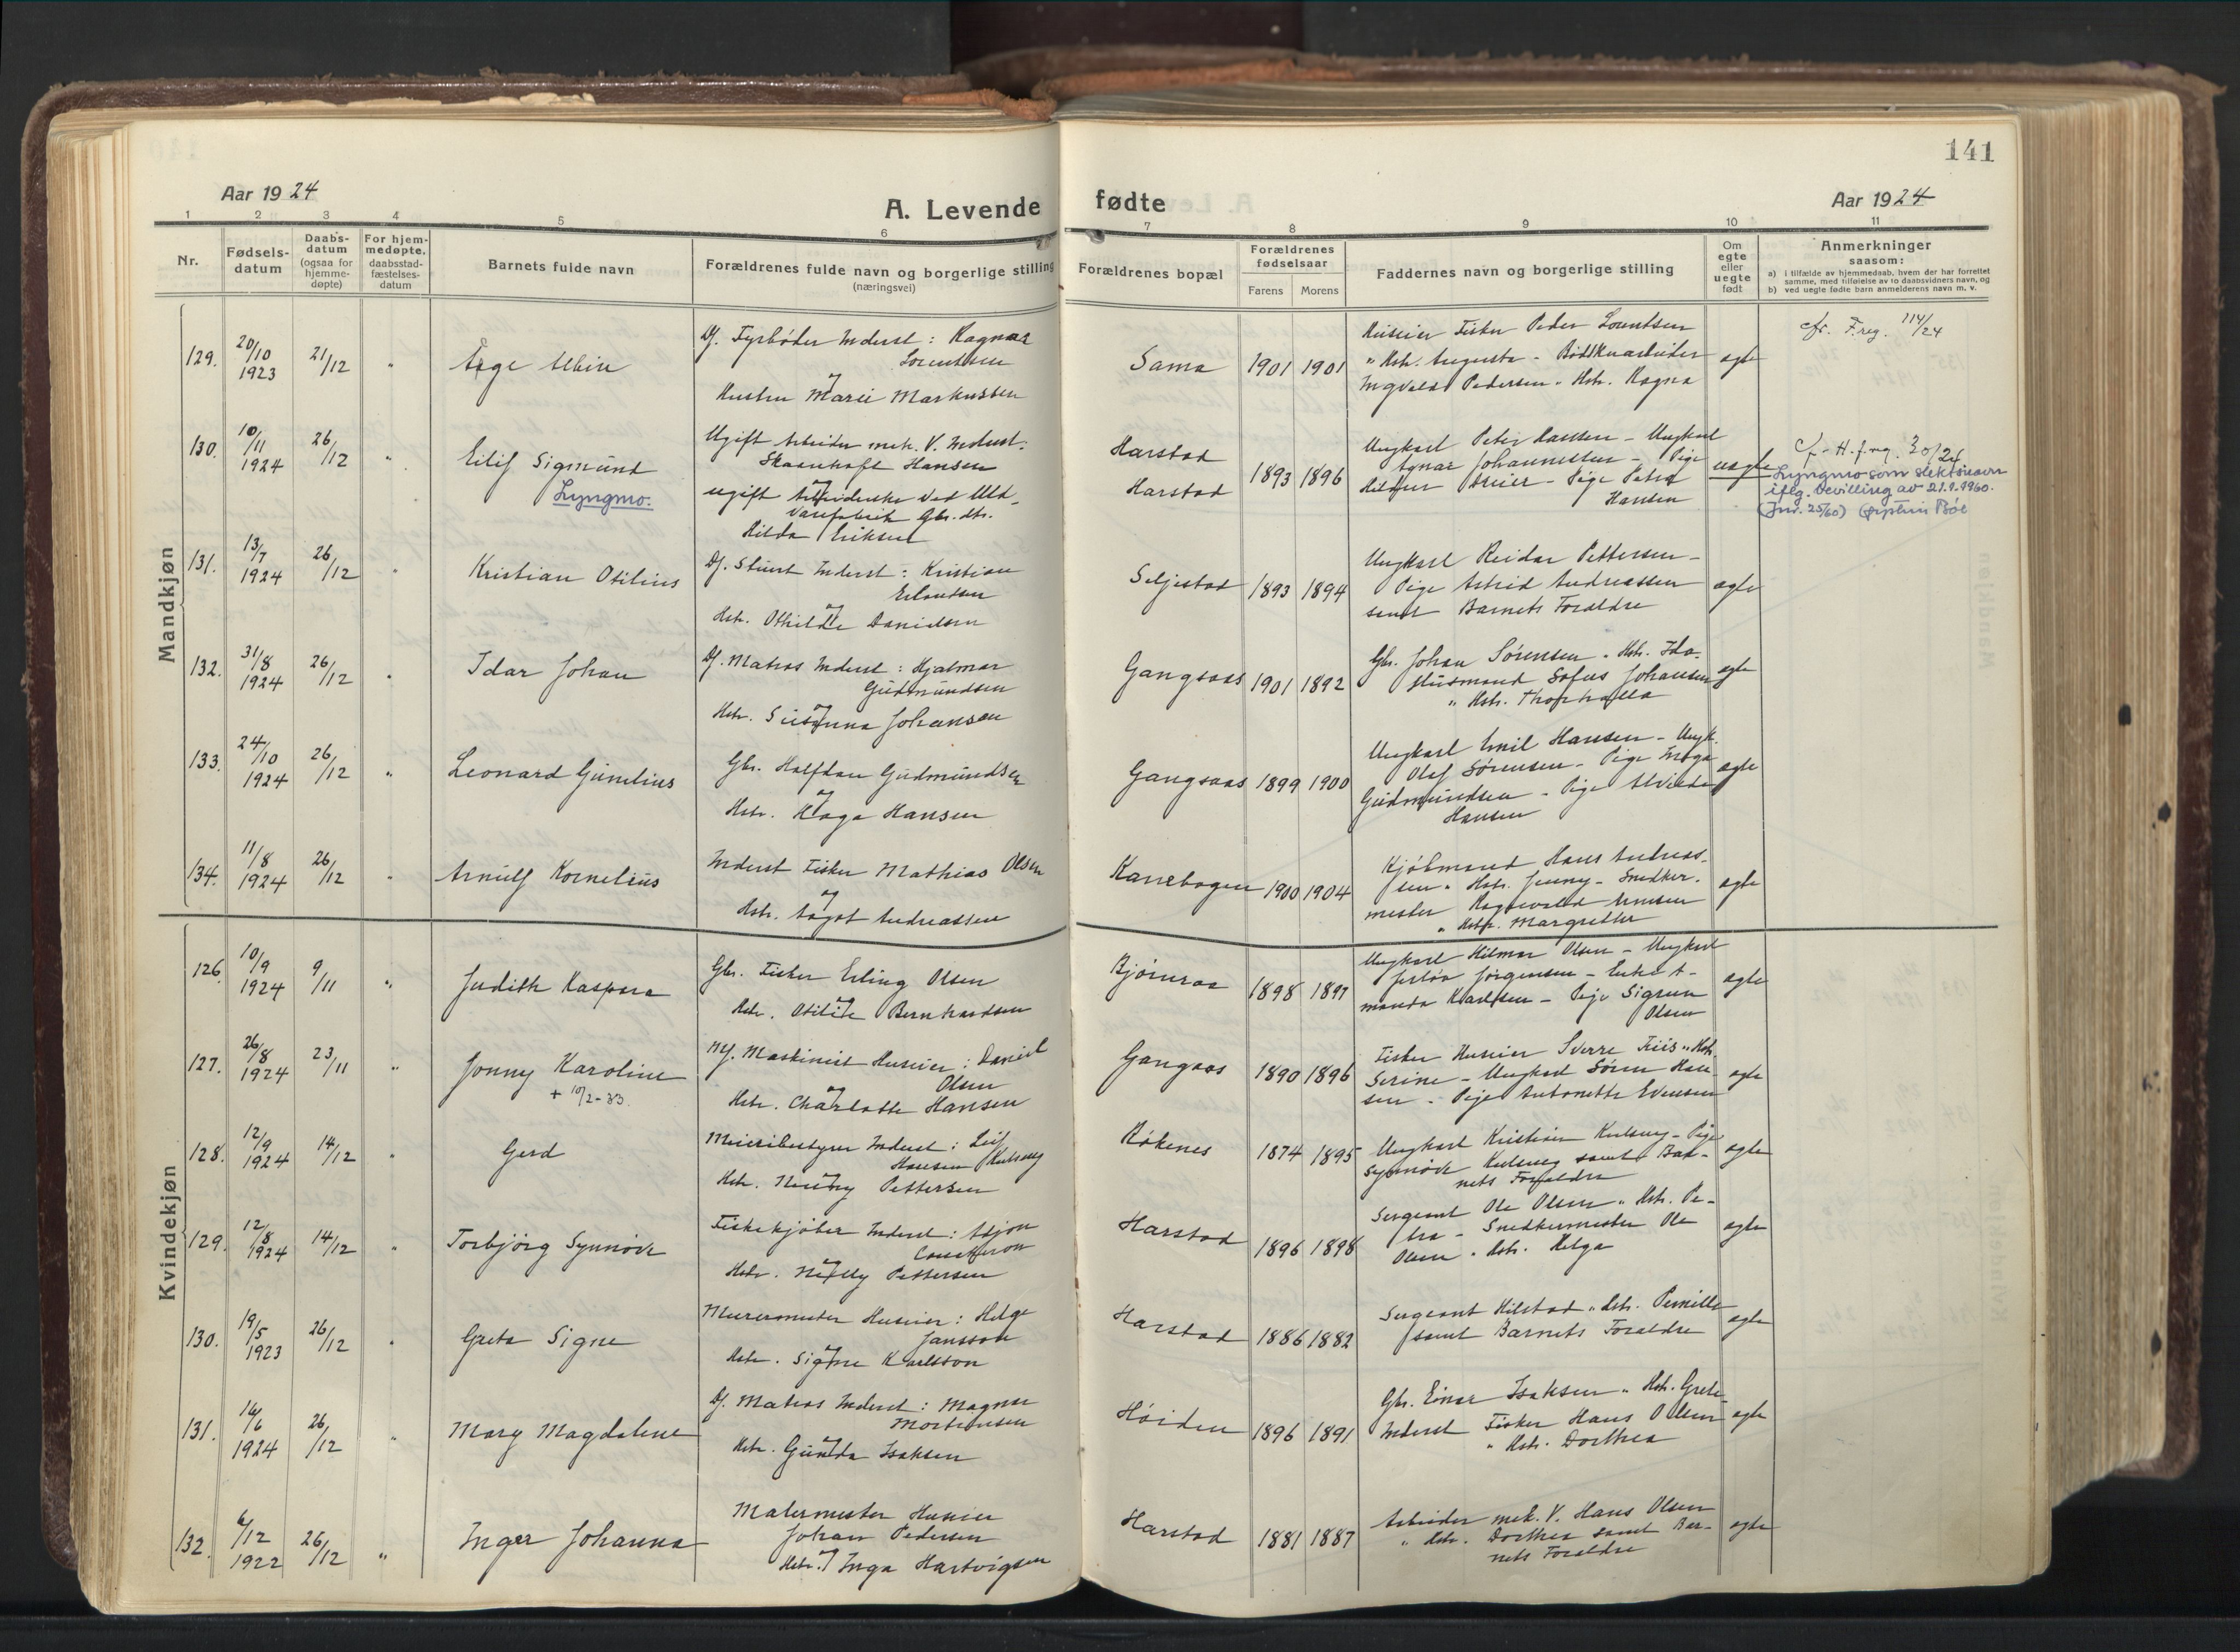 141
Aar 1924
A. Levende fødte
Aar 1924
1 2 3 4 5 6 7 8 9 10 11
Nr.
Fødsels-
datum
Daabs-
datum
(ogsaa for
hjemme-
døpte)
For hjem-
medøpte,
daabsstad-
fæstelses-
datum
Barnets fulde navn
Forældrenes fulde navn og borgerlige stilling
(næringsvei)
Forældrenes bopæl
Forældrenes
fødselsaar
Farens Morens
Faddernes navn og borgerlige stilling
Om
egte
eller
uegte
født
Anmerkninger
saasom:
a) i tilfælde av hjemmedaab, hvem der har forrettet
samme, med tilføielse av to daabsvidners navn, og
b) ved uegte født barn anmelderens navn m. v.
Mandkjøn
129. 20/10 1923 21/12 "
Åge Albin
Df. Fyrbøder Inderst: Ragnar
Lorentsen
og
Hustru Marie Markussen
Sama 1901 1901
Huseier Fisker Peder Lorentsen
" Hstr. Augusta -
Ingvald Pedersen " Hstr. Ragna
egte
cfr. F.reg. 114/24
130. 10/11 1924 26/12 "
Eilif Sigmund
Lyngmo.
Ugift Arbeider mek. V. Inderst:
Hansen
ugift Arbeiderske ved Uld-
varefabrik Gbr. dtr.
Hilda Eriksen
Harstad
Harstad
1893 1896
Ungkarl Peter Hansen - Ungkarl
Agnar Johannessen - Pige
Dreier - Pige Petra
Hansen
uegte
Cfr. H.f.reg. 30/24
Lyngmo som slektsnavn
iflg. bevilling av 21.9.1960.
(Jnr. 25/60)
131. 13/7 1924 26/12 "
Kristian Otilius
Df. Stuert Inderst: Kristian
Erlandsen
og
Hstr. Othilde Danielsen
Seljestad 1893 1894
Ungkarl Reidar Pettersen -
Pige Astrid Andreassen
samt Barnets Forældre
egte
132. 31/8 1924 26/12 "
Idar Johan
Df. Matros Inderst: Hjalmar
Gudmundsen
og
Hstr. Susanna Johansen
Gangsaas 1901 1892
Gbr. Johan Sørensen " Hstr. Ida -
Husmand Sofus Johansen
" Hstr.
egte
133. 24/10 1924 26/12 "
Leonard Gunelius
Gbr. Halfdan Gudmundsen
og
Hstr. Haga Hansen
Gangsaas 1899 1900
Ungkarl Emil Hansen - Ungk.
Olaf Sørensen - Pige Inga
Gudmundsen - Pige Alvilda
Hansen
egte
134. 11/8 1924 26/12 "
Arnulf Kornelius
Inderst Fisker Mathias Olsen
og
Hstr. Aagot Andreassen
Kanebogen 1900 1904
Kjøbmand Hans Andreas-
sen " Hstr. Jenny - Snedker-
mester
" Hstr. Margrethe
egte
Kvindekjøn
126. 10/9 1924 9/11 "
Judith Kaspara
Gbr. Fisker Erling Olsen
og
Hstr. Otilie Bernhardsen
Bjørnraa 1898 1897
Ungkarl Hilmar Olsen - Ungkarl
Jørgensen - Enke A-
manda Karlsen - Pige Sigrun
Olsen
egte
127. 26/8 1924 23/11 "
Jonny Karoline
+ 10/2-33.
Df. Maskinist Huseier: Daniel
Olsen
og
Hstr. Charlotte Hansen
Gangsaas 1890 1896
Fisker Huseier Sverre Friis " Hstr.
Serine - Ungkarl Søren Han-
sen - Pige Antonette Evensen
egte
128. 12/9 1924 14/12 "
Gerd
Meieribestyrer Inderst: Leif
Hansen Kulseng
og
Hstr. Pettersen
Røkenes 1874 1895
Ungkarl Kristian Kulseng - Pige
Synnøve Kulseng samt Bar-
nets Forældre
egte
129. 12/8 1924 14/12 "
Torbjørg Synnøve
Fiskekjøber Inderst: Asbjørn
og
Hstr. Nelly Pettersen
Harstad 1896 1898
Sergeant Ole Olsen " Hstr. Pe-
tra - Snedkermester Ole
Olsen " Hstr. Helga
egte
130. 19/5 1923 26/12 "
Greta Signe
Murermester Huseier: Helge
Jansson
og
Hstr. Signe Karlsson
Harstad 1886 1882
Sergeant Kilstad " Hstr. Pernille
samt Barnets Forældre
egte
131. 14/6 1924 26/12 "
Mary Magdalene
Df. Matros Inderst: Magnar
Mortensen
og
Hstr. Gunda Isaksen
Høiden 1896 1891
Gbr. Einar Isaksen " Hstr. Grete
Inderst Fisker Hans Olsen
" Hstr. Dorthea
egte
132. 6/12 1922 26/12 "
Inger Johanna
Malermester Husier
Johan Pedersen
og
Hstr. Inga Hartvigsen
Harstad 1881 1887
Arbeider mek. V. Hans Olsen
" Hstr. Dorthea samt Bar-
nets Forældre
egte